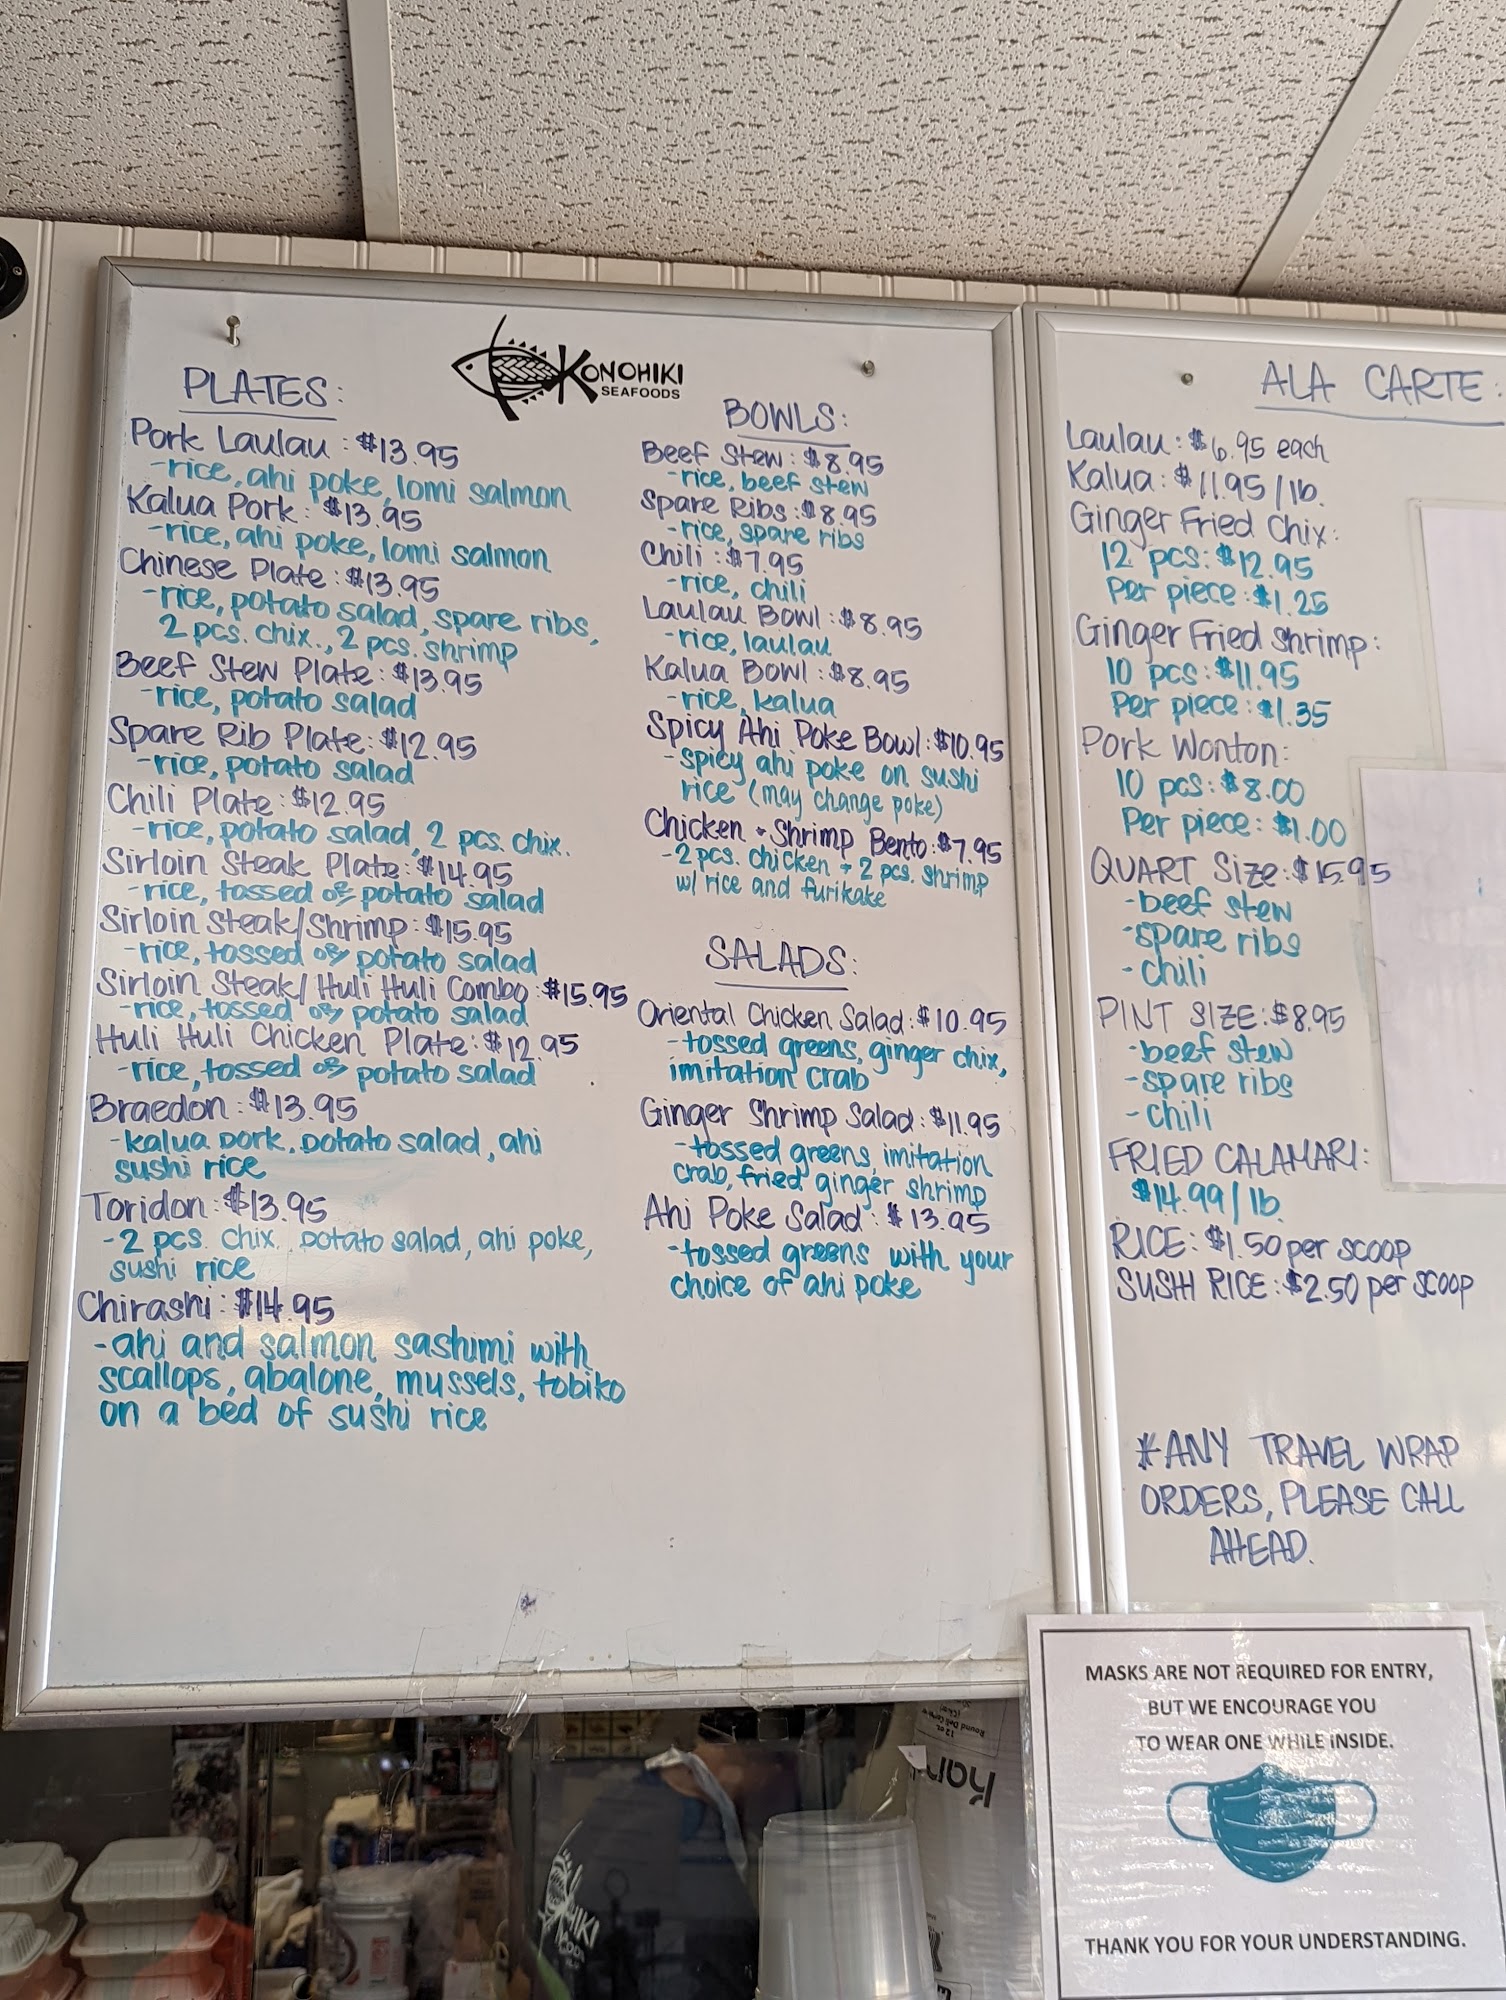 KONOHIKI
SEAFOODS
PLATES:
Pork Laulau: $13.95
-rice, ahi poke, lomi salmon
Kalua Pork: $13.95
-rice, ahi poke, lomi salmon
Chinese Plate: $13.95
-rice, potato salad, spare ribs,
2 pcs. chix., 2 pcs. shrimp
Beef Stew Plate: $13.95
-rice, potato salad
Spare Rib Plate: $12.95
-rice, potato salad
Chili Plate: $12.95
-rice, potato salad, 2 pcs. chix.
Sirloin Steak Plate: $14.95
-rice, tossed or potato salad
Sirloin Steak/Shrimp: $15.95
-rice, tossed or potato salad
Sirloin Steak/Huli Huli Combo: $15.95
-rice, tossed or potato salad
Huli Huli Chicken Plate: $12.95
-rice, tossed or potato salad
Braedon: $13.95
-kalua pork, potato salad, ahi
sushi rice
Toridon: $13.95
-2 pcs. chix, potato salad, ahi poke,
sushi rice
Chirashi: $14.95
-ahi and salmon sashimi with
scallops, abalone, mussels, tobiko
on a bed of sushi rice
BOWLS:
Beef Stew: $8.95
-rice, beef stew
Spare Ribs: $8.95
-rice, spare ribs
Chili: $7.95
-rice, chili
Laulau Bowl: $8.95
-rice, laulau
Kalua Bowl: $8.95
-rice, kalua
Spicy Ahi Poke Bowl: $10.95
-spicy ahi poke on sushi
rice (may change poke)
Chicken + Shrimp Bento: $7.95
-2 pcs. chicken + 2 pcs. shrimp
w/ rice and furikake
SALADS:
Oriental Chicken Salad: $10.95
-tossed greens, ginger chix,
imitation crab
Ginger Shrimp Salad: $11.95
-tossed greens, imitation
crab, fried ginger shrimp
Ahi Poke Salad: $13.95
-tossed greens with your
choice of ahi poke
ALA CARTE:
Laulau: $6.95 each
Kalua: $11.95/lb.
Ginger Fried Chix:
12 pcs: $12.95
Per piece: $1.25
Ginger Fried Shrimp:
10 pcs: $11.95
Per piece: $1.35
Pork Wonton:
10 pcs: $8.00
Per piece: $1.00
QUART Size: $15.95
-beef stew
-spare ribs
-chili
PINT SIZE: $8.95
-beef stew
-spare ribs
-chili
FRIED CALAMARI:
$14.99/lb.
RICE: $1.50 per scoop
SUSHI RICE: $2.50 per scoop
*ANY TRAVEL WRAP
ORDERS, PLEASE CALL
AHEAD.
MASKS ARE NOT REQUIRED FOR ENTRY,
BUT WE ENCOURAGE YOU
TO WEAR ONE WHILE INSIDE.
THANK YOU FOR YOUR UNDERSTANDING.